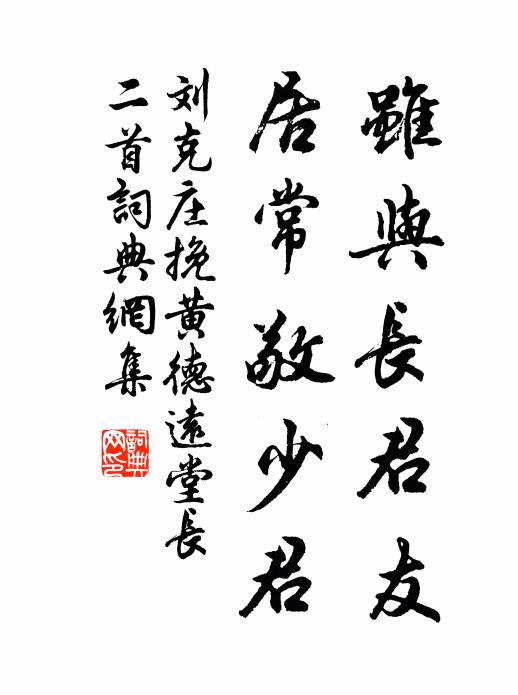 雖與長君友
居常敬少君
刘克庄挽黄德遠堂長
二首詞典網集
詞典
网印